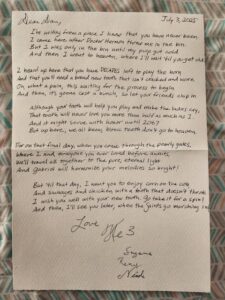 Dear Dan,
July 3, 2025
I'm writing from a place I know that you have never been.
I came here after Doctor threw me in the bin.
But I was only in the bin until my pulp got void
And then, I went to heaven, where I'll wait 'til you get
I heard up here that you have DECADES left to play the horn
And that you'll need a brand new tooth that isn't cracked and worn.
Oh what a pain, this waiting for the process to begin
And then, it's gonna cost a bunch, so let your friends chip in
Although your teeth will help you play and make the ladies cry,
That tooth will never love you more than half as much as I.
And it might survive with honor until 2057
But up here, we all being bionic teeth don't go to heaven.
For on that final day, when you come through the pearly gates,
Where I and everyone you ever loved before awaits
We'll travel all together to the pure, eternal light
And Gabriel will harmonize your melodies so bright!
But 'til that day, I want you to enjoy corn on the cob
And sausages and chicken with a tooth that doesn't throb
I wish you well with your new tooth. Go take it for a spin!
And then, I'll see you later, when the saints go marching in
Love
# 3